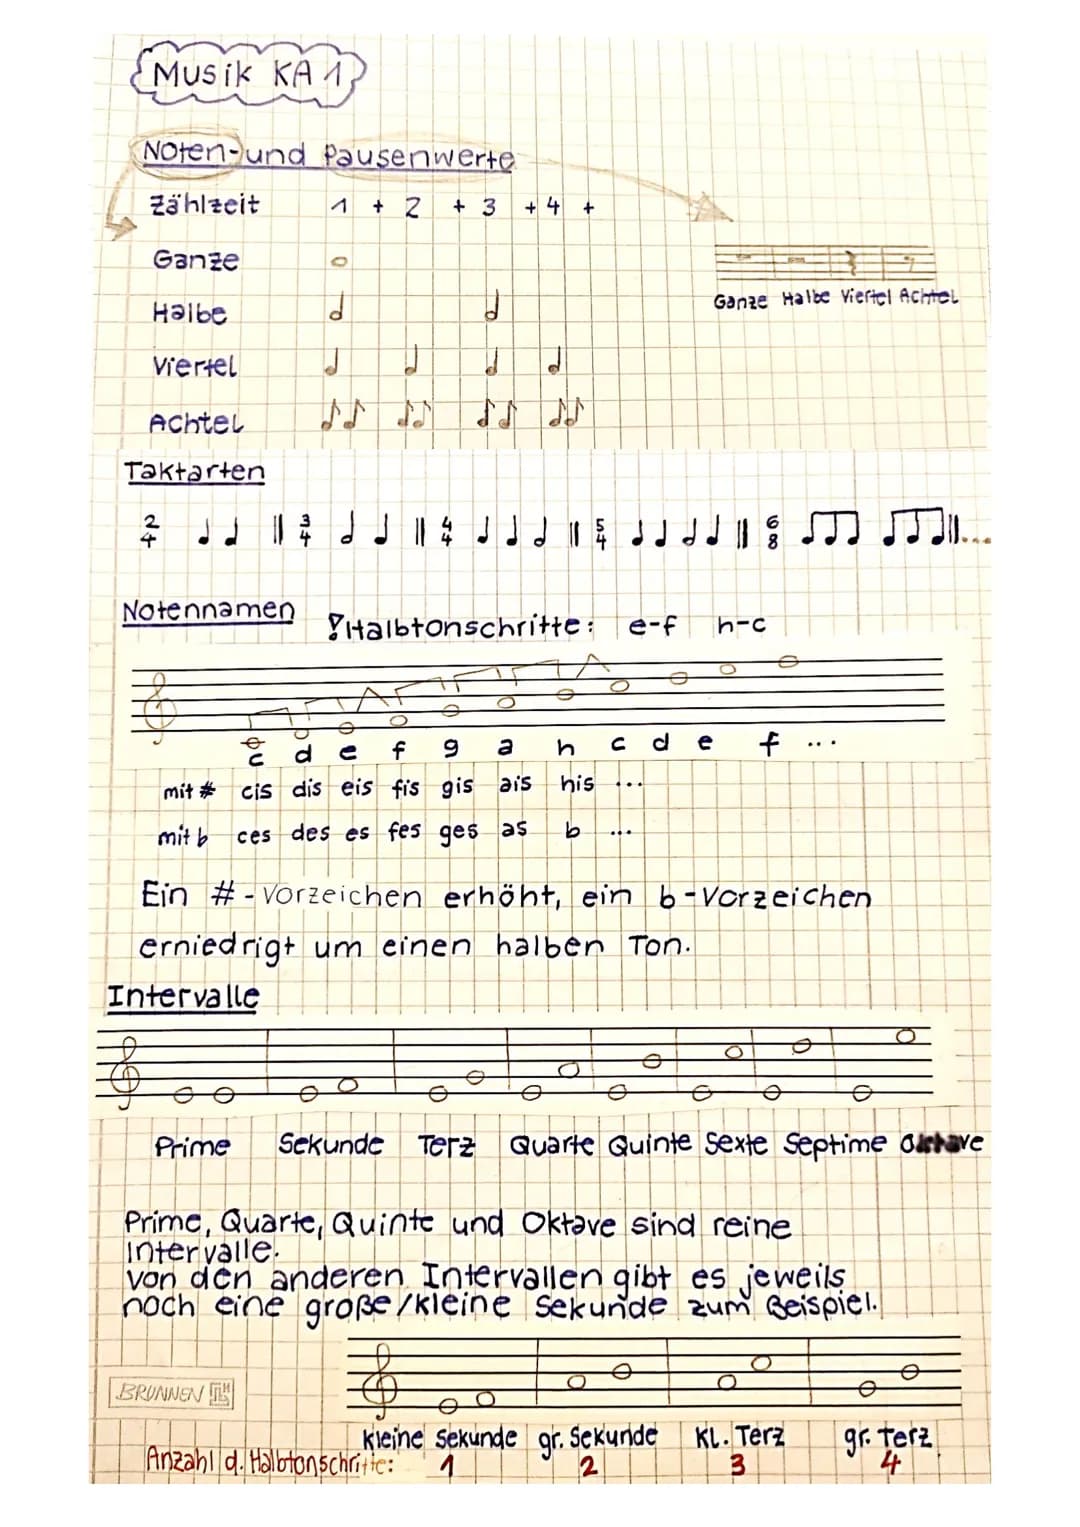 Musik KA 1
Noten- und Pausenwerte
Zählzeit 1 + 2 + 3 + 4 +
Ganze
Halbe
Viertel
Achtel
Ganze Halbe Viertel Achtel
Taktarten
2/4 3/4 4/4 5/4 6/8 ...
Notennamen
!Halbtonschritte: e-f h-c
c d e f g a h c d e f ...
mit # cis dis eis fis gis ais his ...
mit b ces des es fes ges as b ...
Ein #-Vorzeichen erhöht, ein b-Vorzeichen
erniedrigt um einen halben Ton.
Intervalle
Prime Sekunde Terz Quarte Quinte Sexte Septime Oktave
Prime, Quarte, Quinte und Oktave sind reine
Intervalle.
Von den anderen Intervallen gibt es jeweils
noch eine große/kleine Sekunde zum Beispiel.
BRUNNEN
kleine Sekunde gr. Sekunde Kl. Terz gr. Terz
Anzahl d. Halbtonschritte: 1 2 3 4